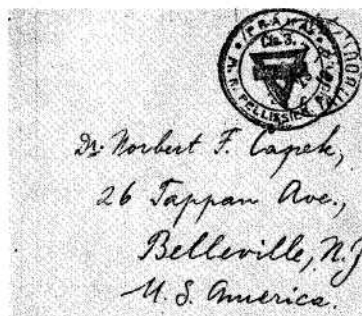 PRAHA
Dr. Norbert F. Capek,
26 Tappan Ave.,
Belleville, N.J
U. S. America.